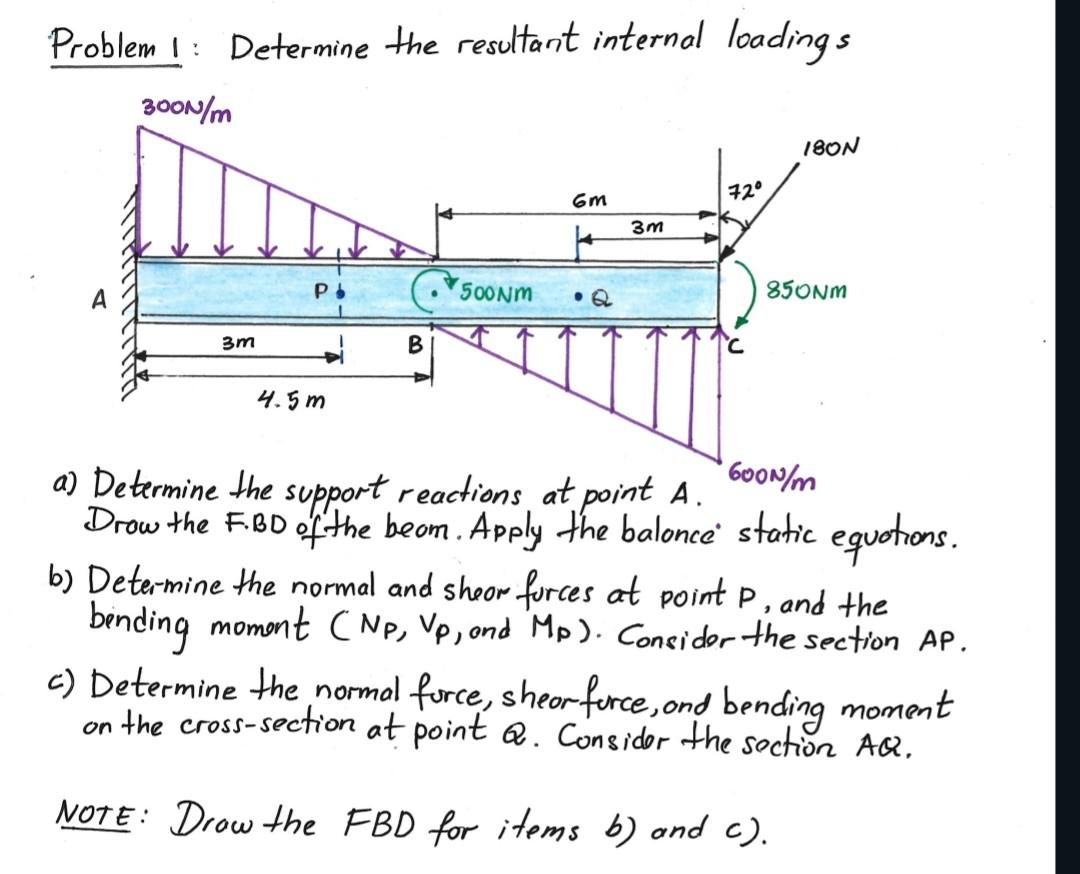 Problem 1: Determine the resultant internal loadings
300N/m
180N
72°
6m
3m
P
500Nm
Q
850Nm
A
3m
B
C
4.5m
600N/m
a) Determine the support reactions at point A.
Draw the F.BD of the beam. Apply the balance static equations.
b) Determine the normal and shear forces at point P, and the
bending moment (Np, Vp, and Mp). Consider the section AP.
c) Determine the normal force, shear force, and bending moment
on the cross-section at point Q. Consider the section AQ.
NOTE: Draw the FBD for items b) and c).